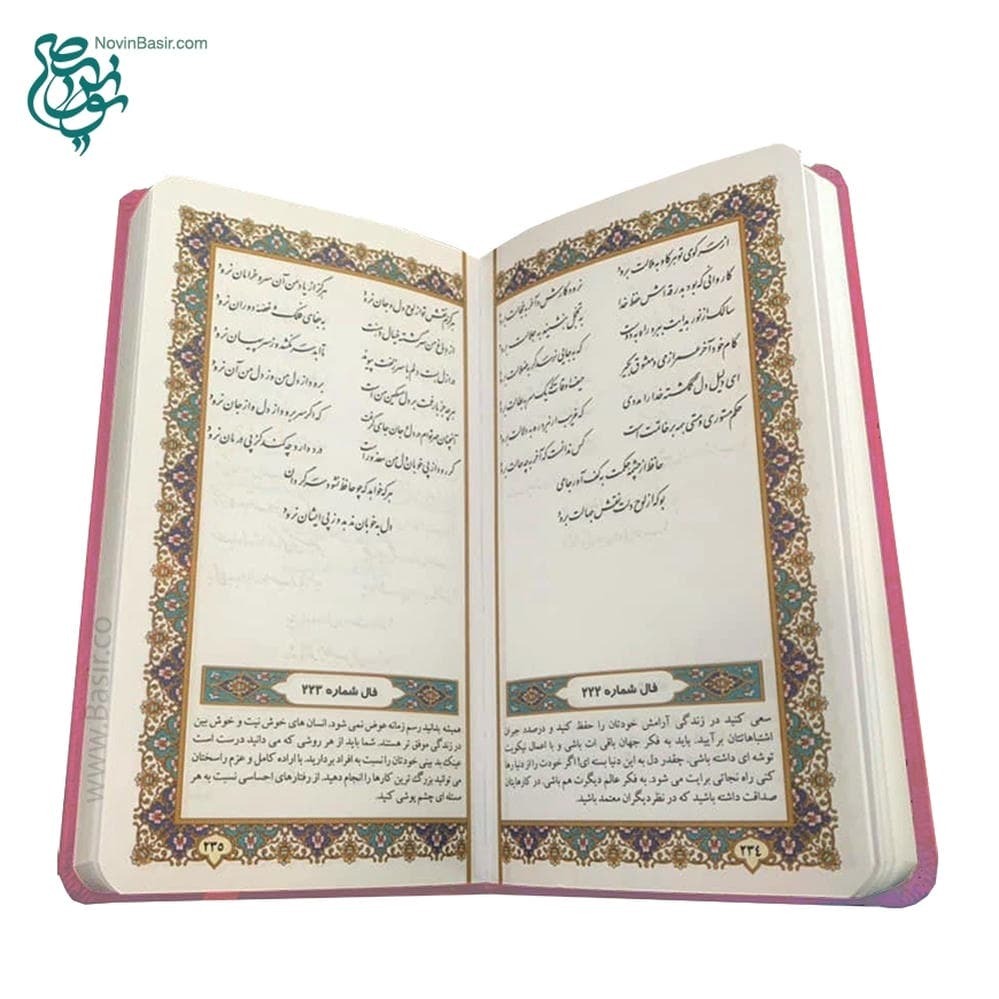 NovinBasir.com
از سر کوی تو هر کاو به ملالت برود نرود کارش و آخر به خجالت برود
کاروانی که بود بدرقه اش حفظ خدا به تجمل بنشیند به جلالت برود
سالک از نور هدایت ببرد راه به دوست که به جایی نرسد گر به ضلالت برود
کام خود آخر عمر از می و معشوق بگیر حیف اوقات که یک سر به بطالت برود
ای دلیل دل گمگشته خدا را مددی که غریب ار نبرد ره به دلالت برود
حکم مستوری و مستی همه بر خاتمت است کس ندانست که آخر به چه حالت برود
حافظ از چشمه حکمت به کف آور جامی
بو که از لوح دلت نقش جهالت برود
فال شماره ۲۲۲
سعی کنید در زندگی آرامش خودتان را حفظ کنید و درصدد جبران
اشتباهاتتان برآیید. باید به فکر جهان باقی ات باشی و با اعمال نیکویت
توشه ای داشته باشی. چقدر دل به این دنیا بسته ای! اگر خودت را از دنیا رها
کنی راه نجاتی برایت می شود. به فکر عالم دیگرت هم باشی. در کارهایتان
صداقت داشته باشید که در نظر دیگران معتمد باشید.
۲۳۴
هرگزم نقش تو از لوح دل و جان نرود هرگز از یاد من آن سرو خرامان نرود
از دماغ من سرگشته خیال دهنت به جفای فلک و غصه دوران نرود
در ازل بست دلم با سر زلفت پیوند تا ابد سر نکشد وز سر پیمان نرود
هر چه جز بار غمت بر دل مسکین من است برود از دل من وز دل من آن نرود
آنچنان مهر توام در دل و جان جای گرفت که اگر سر برود از دل و از جان نرود
گر رود از پی خوبان دل من معذور است درد دارد چه کند کز پی درمان نرود
هر که خواهد که چو حافظ نشود سرگردان
دل به خوبان ندهد وز پی ایشان نرود
فال شماره ۲۲۳
همیشه بدانید رسم زمانه عوض نمی شود. انسان های خوش نیت و خوش بین
در زندگی موفق تر هستند. شما باید از هر روشی که می دانید درست است
عینک بد بینی خودتان را نسبت به افراد بردارید. با اراده کامل و عزم راسختان
می توانید بزرگ ترین کارها را انجام دهید. از رفتارهای احساسی نسبت به هر
سئله ای چشم پوشی کنید.
۲۳۵
www.Basir.co